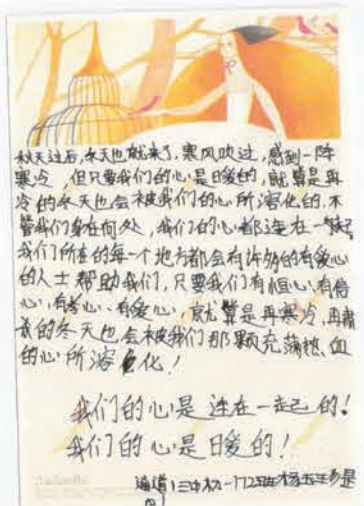 秋天过后,冬天也就来了,寒风吹过,感到一阵
寒冷,但只要我们的心是暖的,就算是再
冷的冬天也会被我们的心所溶化的,不
管我们身在何处,我们的心都连在一起,
我们所在的每一个地方都会有许多的有爱心
的人士帮助我们,只要我们有恒心、有信
心、有孝心、有爱心,就算是再寒冷,再
的冬天也会被我们那颗充满热血
的心所溶化!
我们的心是连在一起的!
我们的心是暖的!